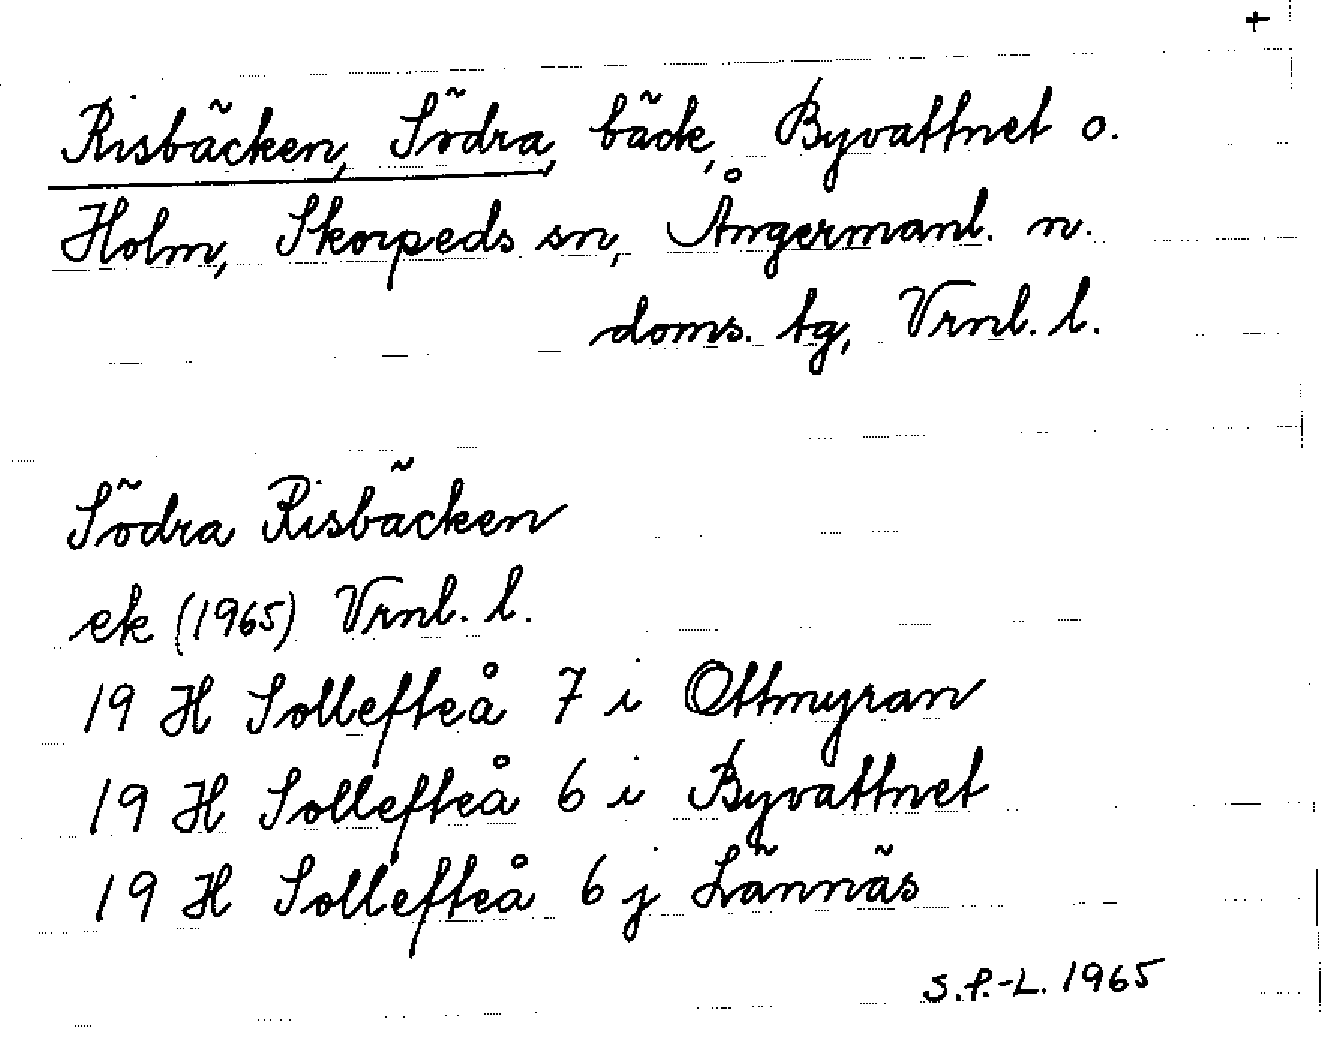 +
Risbäcken, Södra, bäck, Byvattnet o.
Holm, Skorpeds sn, Ångermanl. n.
doms. tg, Vrnl. l.
Södra Risbäcken
ek (1965) Vrnl. l.
19 H Sollefteå 7 i Ottmyran
19 H Sollefteå 6 i Byvattnet
19 H Sollefteå 6 j Lännäs
S.P.-L. 1965